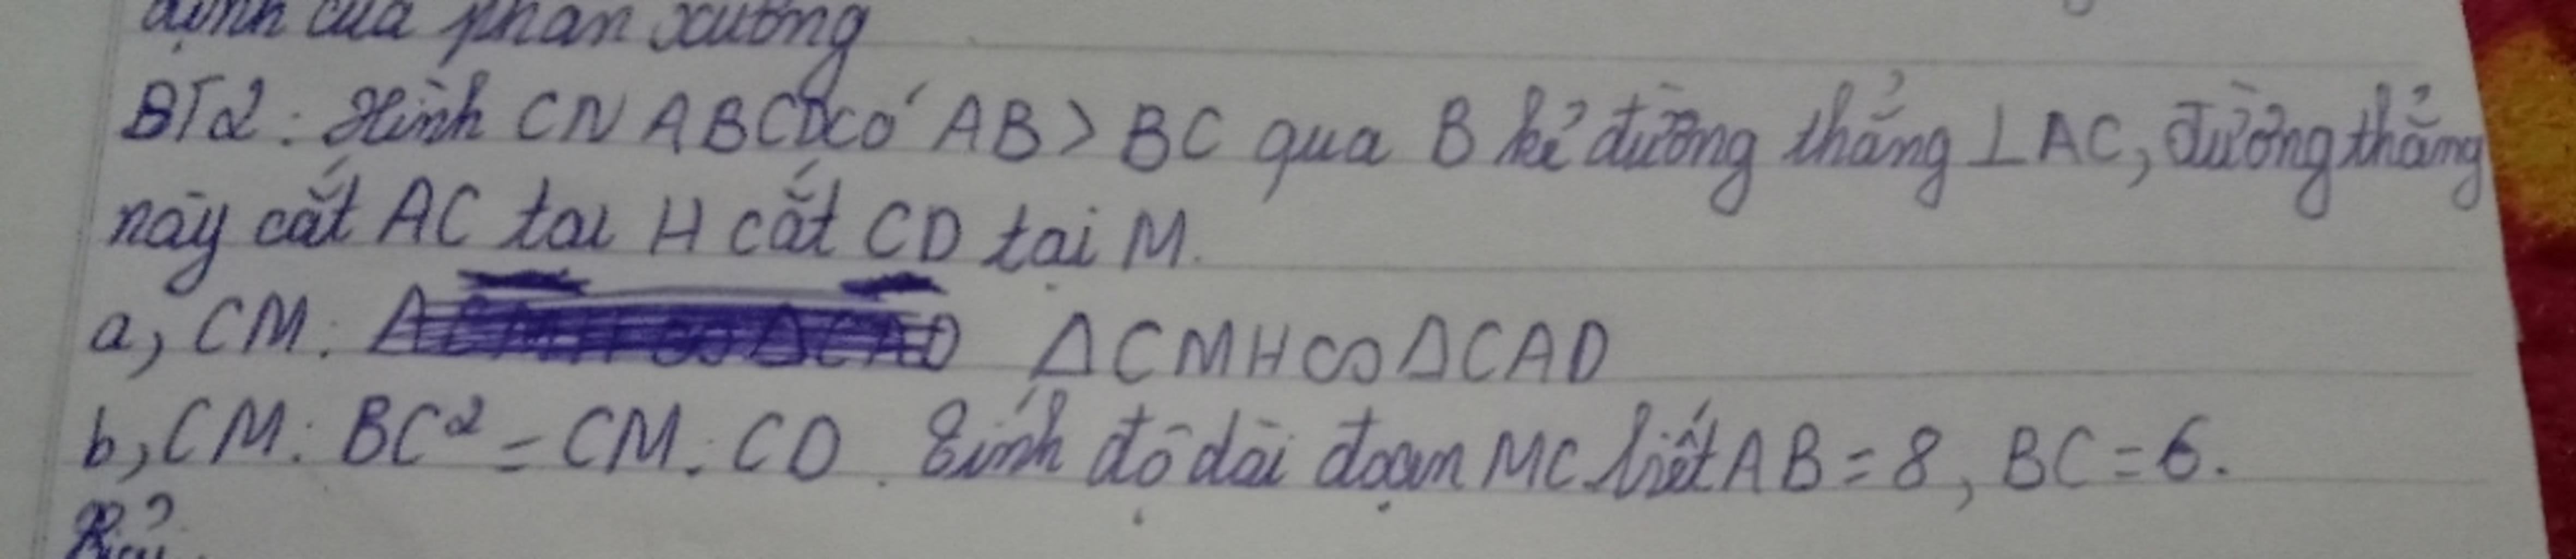 định của phân xưởng
BT2: Hình CN ABCD có AB > BC qua B kẻ đường thẳng ⊥ AC, đường thẳng
này cắt AC tai H cắt CD tại M.
a, CM: ΔCMH ∽ ΔCAD
b, CM: BC² = CM . CD. Tính độ dài đoạn MC biết AB = 8, BC = 6.